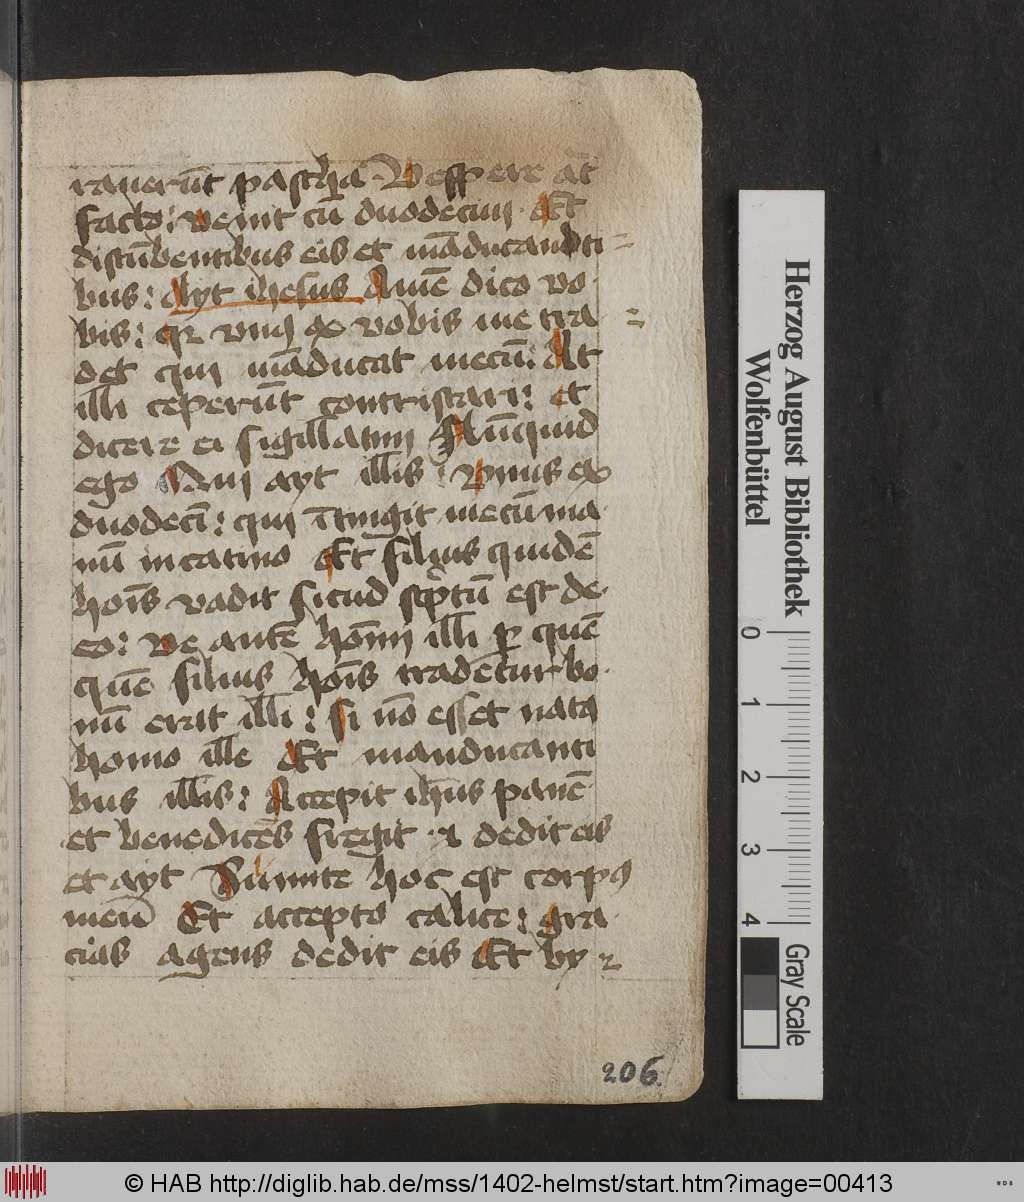 rauerūt pascha Vespere aūt
facto: venit cū duodecim Et
discūbentibus eis et māducanti
bus: Ayt ihesus Amē dico vo
bis: qꝛ vnꝯ ex vobis me tra
det qui māducat mecū: At
illi ceperūt contristari: et
dicere ei sigillatim Nūquid
ego Qui ayt illis: Vnus ex
duodecī: qui ītingit mecū ma
nū in catino Et filius quidē
hoīs vadit sicud scptū est de
eo: ve autē homi illi ꝑ quē
quē filius hoīs tradetur bo
nū erat illi: si nō esset natꝯ
homo ille Et manducanti
bus illis: Accepit ihus panē
et benedicēs fregit ⁊ dedit eis
et ayt Sumite hoc est corpꝯ
meū Et accepto calice: gra
cias agens dedit eis Et by
206
Herzog August Bibliothek
Wolfenbüttel
0 1 2 3 4
Gray Scale
© HAB http://diglib.hab.de/mss/1402-helmst/start.htm?image=00413